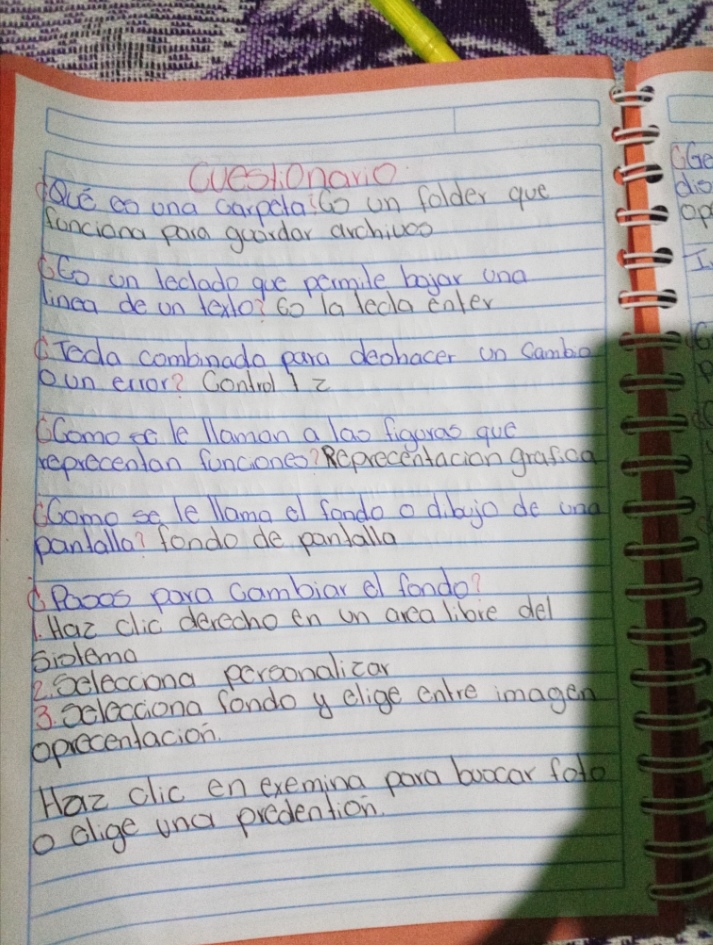 Cuestionario
¿Qué es una carpeta? Es un folder que
funciona para guardar archivos
¿Es un teclado que permite bajar una
linea de un texto? Es la tecla enter
¿Tecla combinada para deshacer un cambio
o un error? Control 1 z
¿Como se le llaman a las figuras que
reprecentan funciones? Reprecentacion grafica
¿Como se le llama el fondo o dibujo de una
pantalla? fondo de pantalla
¿Pasos para cambiar el fondo?
1. Haz clic derecho en un area libre del
sistema
2. Selecciona personalizar
3. Selecciona fondo y elige entre imagen
o precentación.
Haz clic en exemina para buscar foto
o elige una predention.
¿Ge
dis
op
I